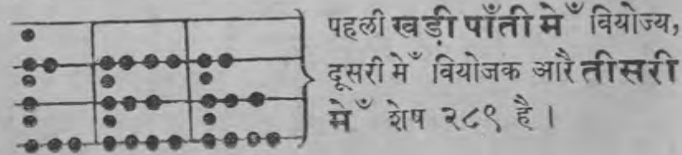 पहली खड़ी पाँती मेँ वियोज्य,
दूसरी मेँ वियोजक आरै तीसरी
मेँ शेष २८९ है ।